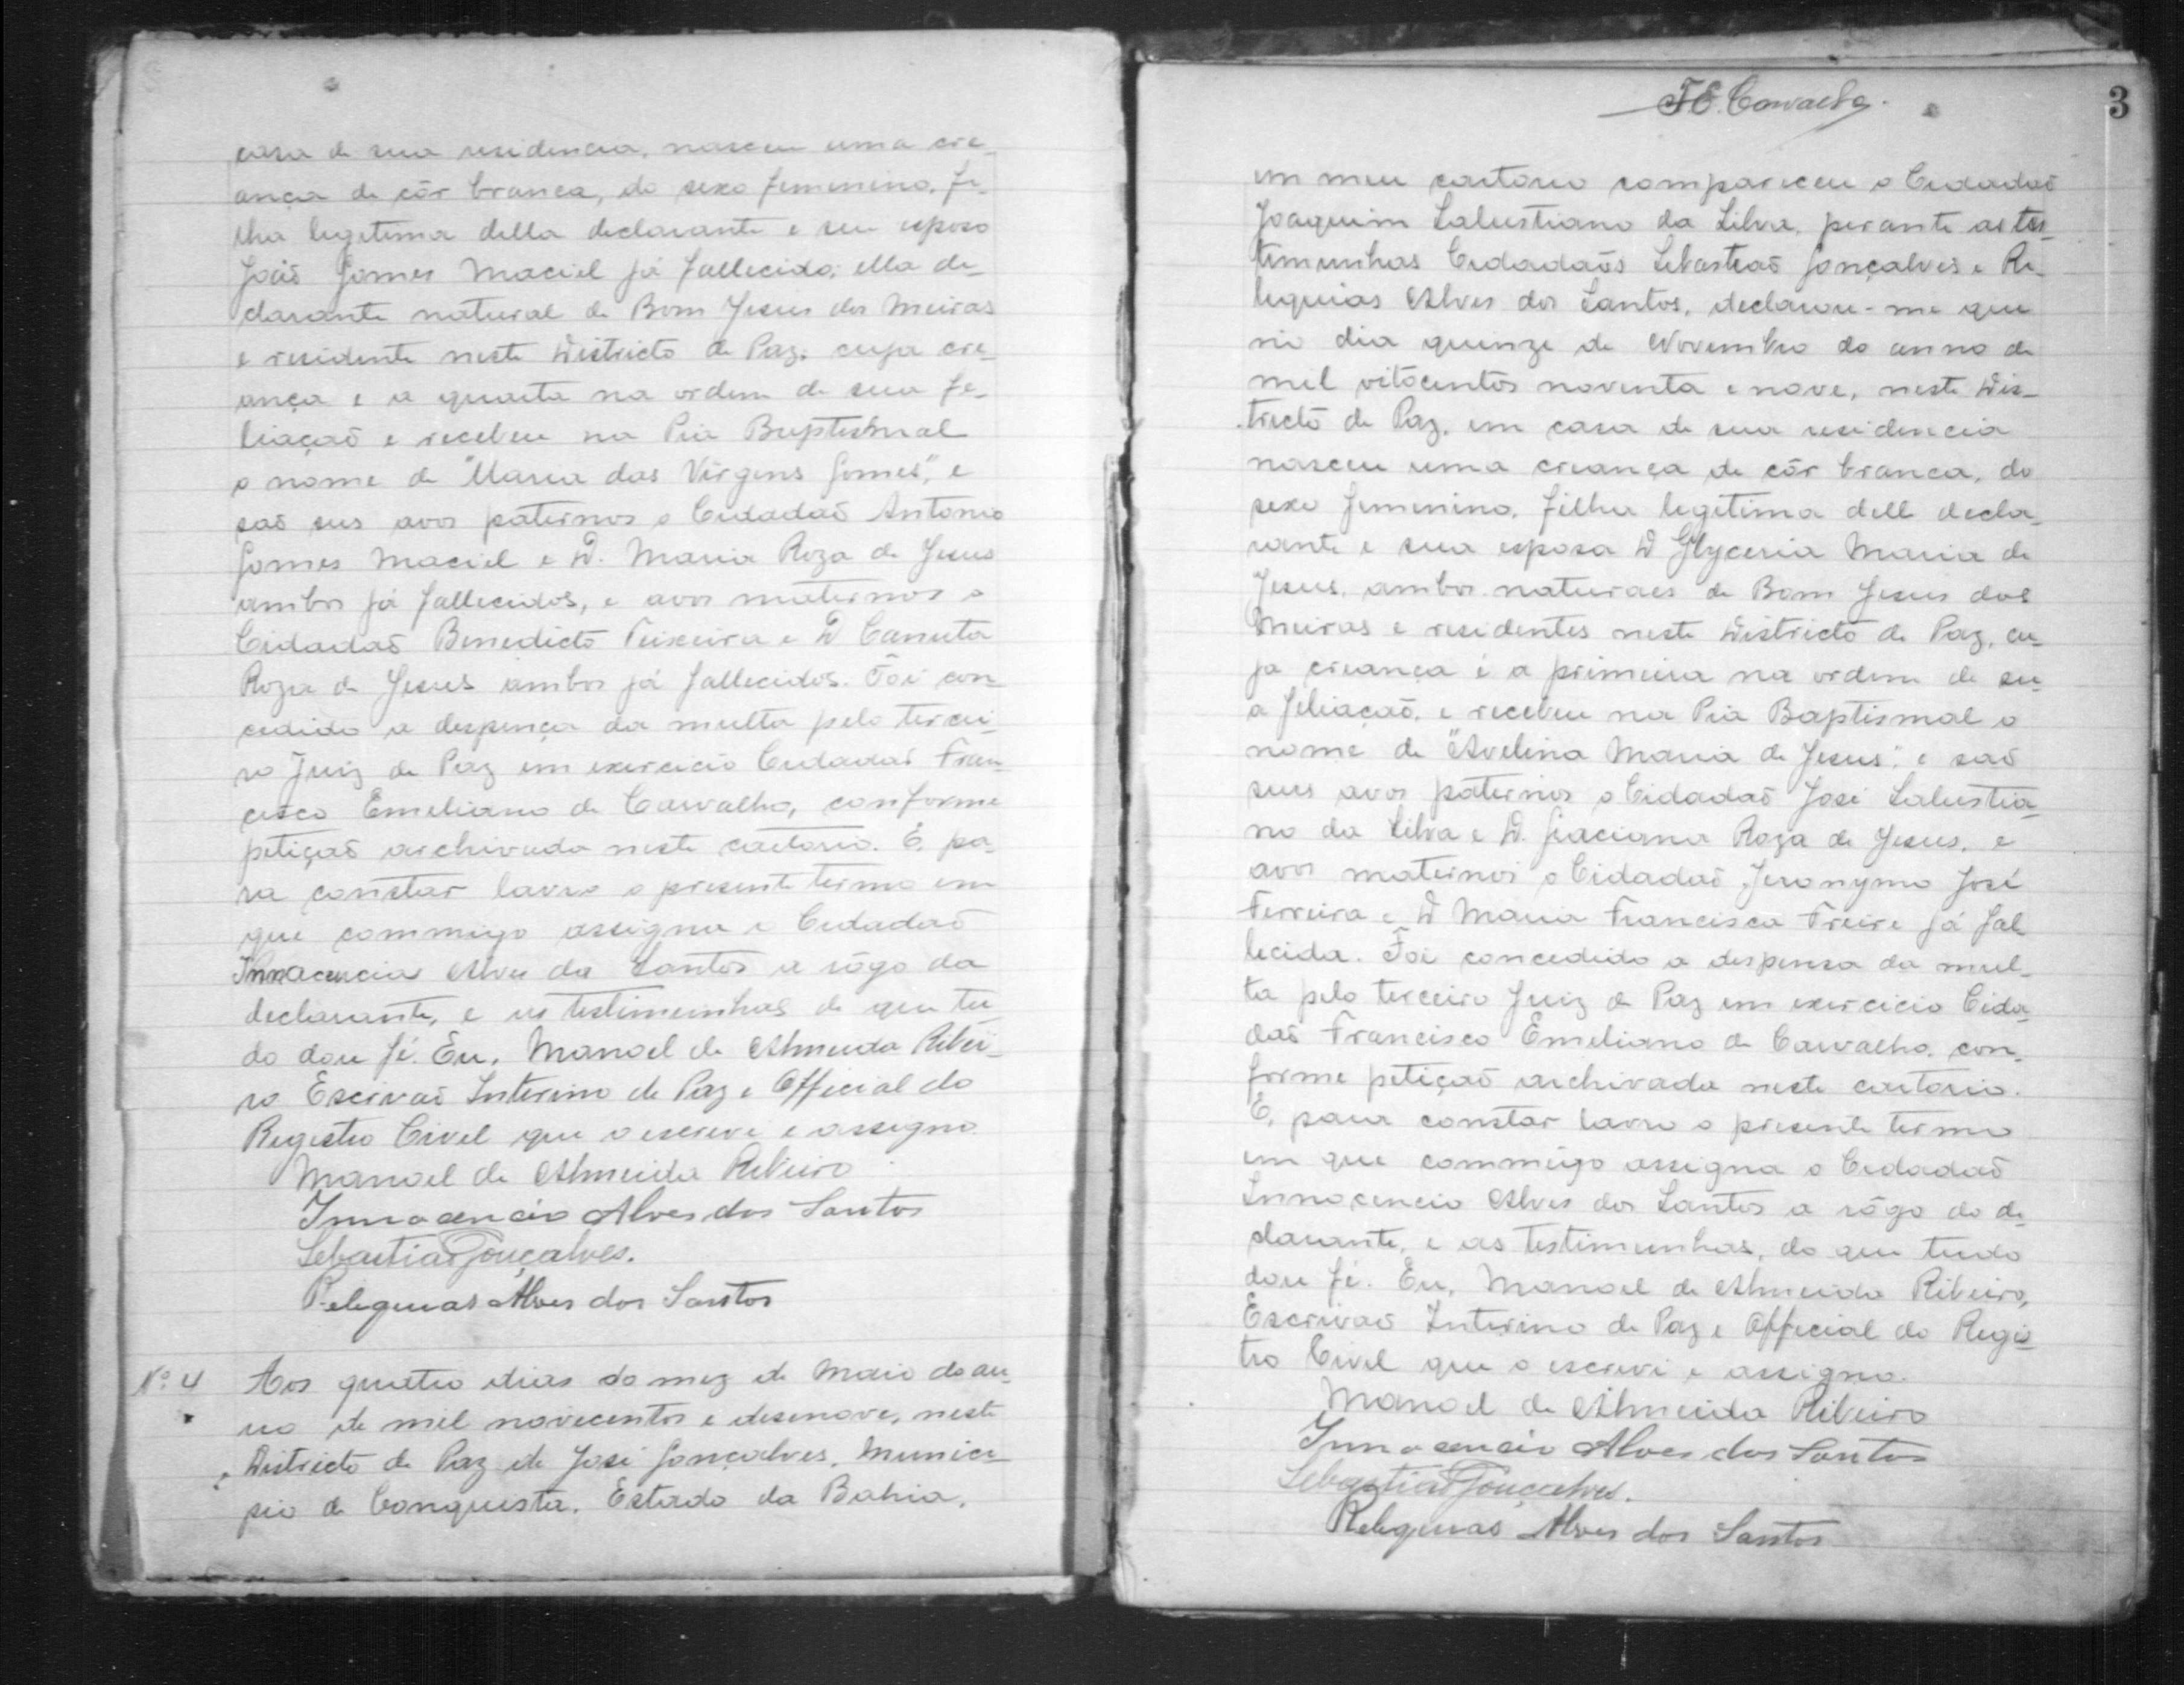 casa de sua residencia, nasceu uma cre-
ança de côr branca, do sexo femenino, fi-
lha legitima della declarante e seu esposo
João Gomes Maciel já fallecido; ella de-
clarante natural de Bom Jesus dos Meiras
e residente neste Districto de Paz, cuja cre-
ança e a quarta na ordem de sua fe-
liação e recebeu na Pia Baptesmal
o nome de "Maria das Virgens Gomes", e
são sus avos paternos o Cidadão Antonio
Gomes Maciel e D. Maria Roza de Jesus
ambos já fallecidos, e avos maternos o
Cidadão Benedicto Teixeira e D Canuta
Roza de Jesus ambos já fallecidos. Foi con-
cedido a despença da multa pelo tercei-
ro Juiz de Paz em exercicio Cidadão Fran-
cisco Emeliano de Carvalho, conforme
petição archivada neste cartorio. E, pa-
ra constar lavro o presente termo em
que commigo assigna o Cidadão
Innocencio Alves dos Santos a rôgo da
declarante, e as testimunhas do que tu-
do dou fé. Eu, Manoel de Almeida Ribei-
ro Escrivão Interino de Paz e Official do
Registro Civel que o escreve e assigno.
Manoel de Almeida Ribeiro
Innocencio Alves dos Santos
Sebastião Gonçalves.
Reliquias Alves dos Santos
Nº 4 Aos quatro dias do mez de Maio do an-
no de mil novecentos e desenove, neste
Districto de Paz de José Gonçalves, Munici-
pio de Conquista, Estado da Bahia,
F. E. Carvalho.
3
em meu cartorio compareceu o Cidadão
Joaquim Salustiano da Silva, perante as tes-
timunhas Cidadãos Sebastião Gonçalves e Re-
liquias Alves dos Santos, declarou-me que
no dia quinze de Novembro do anno de
mil oitocentos noventa e nove, neste Dis-
tricto de Paz, em casa de sua residencia
nasceu uma creança de côr branca, do
sexo femenino, filha legitima delle decla-
rante e sua esposa D Glyceria Maria de
Jesus, ambos naturaes de Bom Jesus dos
Meiras e residentes neste Districto de Paz, cu-
ja creança é a primeira na ordem de su-
a feliação, e recebeu na Pia Baptismal o
nome de "Avelina Maria de Jesus": e são
sus avos paternos o Cidadão José Salustia-
no da Silva e D. Graciana Roza de Jesus, e
avos maternos o Cidadão Jeronymo José
Ferreira e D Maria Francisca Freire já fal-
lecida. Foi concedido a despensa da mul-
ta pelo terceiro Juiz de Paz em exercicio Cida-
dão Francisco Emeliano de Carvalho, con-
forme petição archivada neste cartorio.
E, para constar lavro o presente termo
em que commigo assigna o Cidadão
Innocencio Alves dos Santos a rôgo do de-
clarante, e as testimunhas, do que tudo
dou fé. Eu, Manoel de Almeida Ribeiro,
Escrivão Interino de Paz e Official do Regis-
tro Civel que o escrevi e assigno.
Manoel de Almeida Ribeiro
Innocencio Alves dos Santos
Sebastião Gonçalves.
Reliquias Alves dos Santos